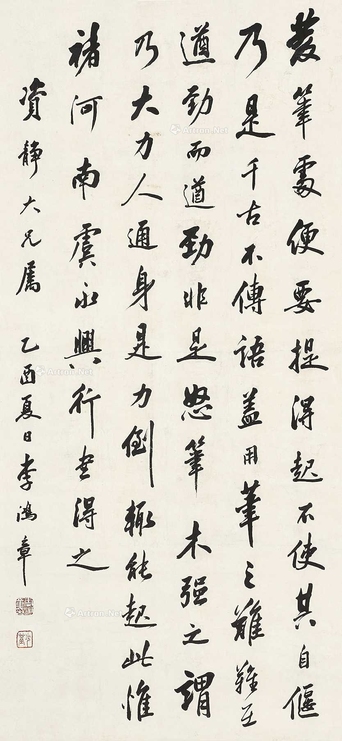 發筆處便要提得起不使其自偃
乃是千古不傳語蓋用筆之難難在
遒勁而遒勁非是怒筆木强之謂
乃大力人通身是力倒輒能起此惟
褚河南虞永興行書得之
資靜大兄屬 乙酉夏日李鴻章
Artron.Net